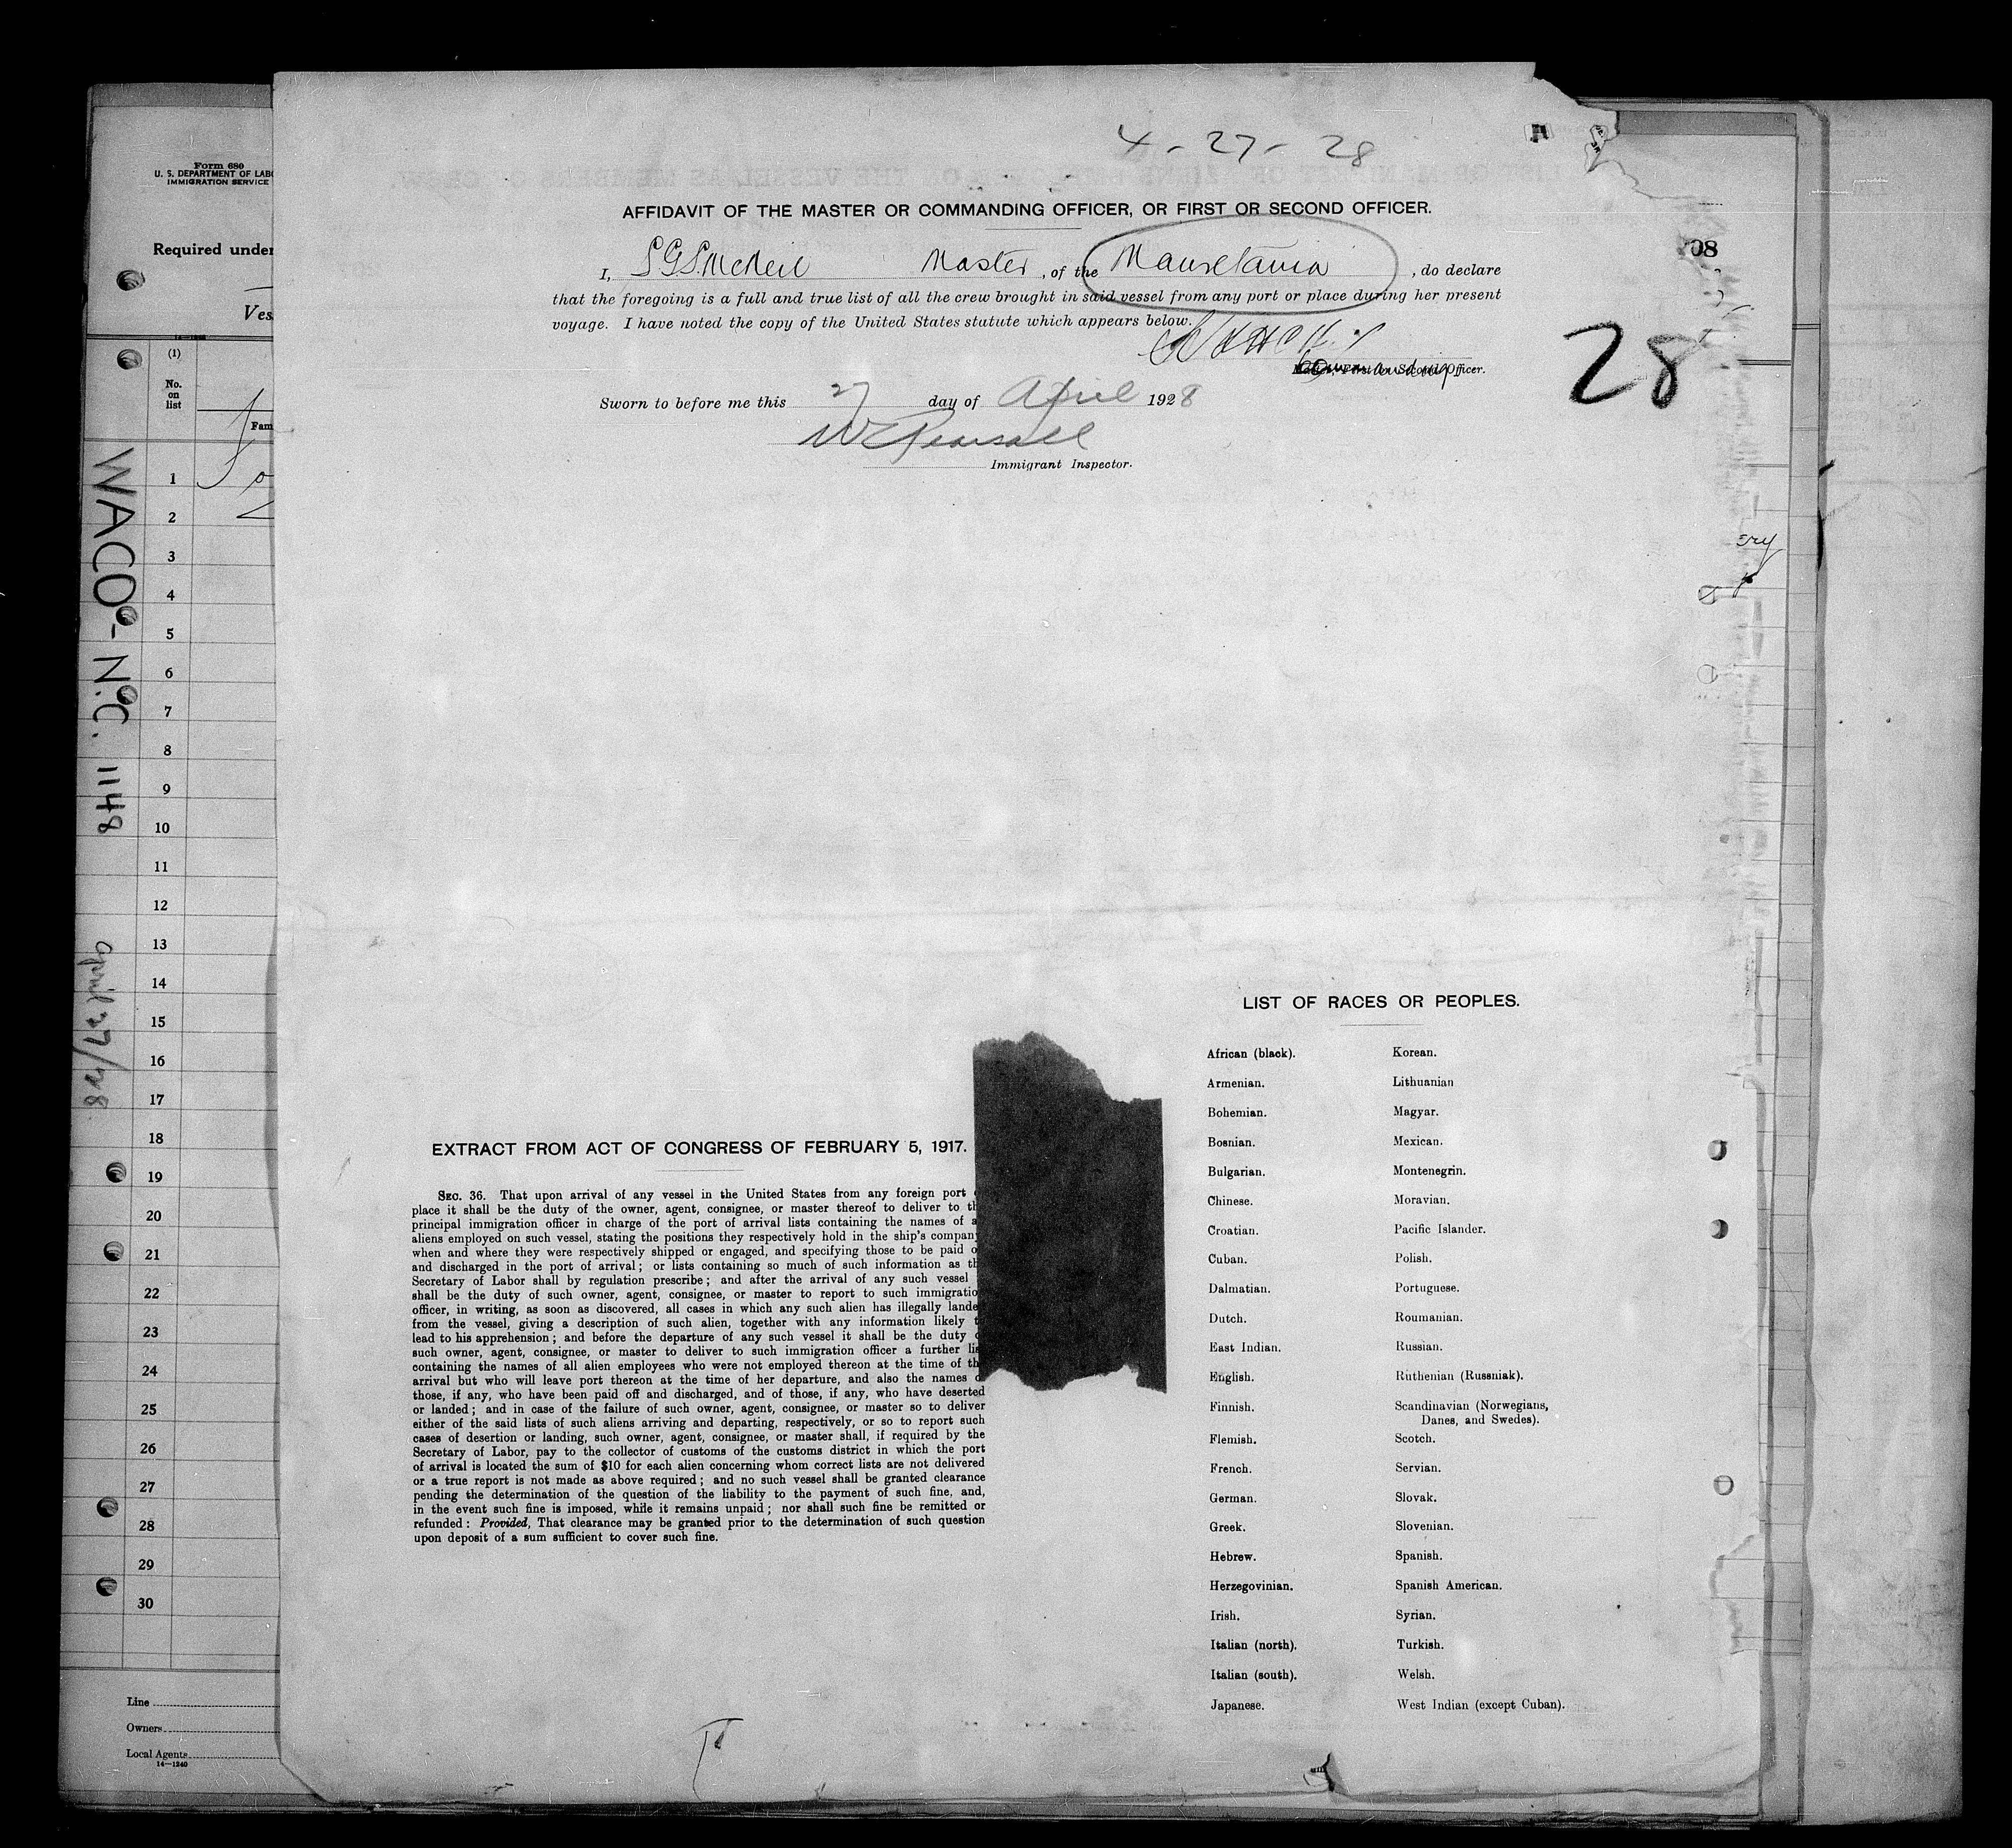 4-27-28
AFFIDAVIT OF THE MASTER OR COMMANDING OFFICER, OR FIRST OR SECOND OFFICER.
I, S.G.S. McNeil Master, of the Mauretania, do declare
that the foregoing is a full and true list of all the crew brought in said vessel from any port or place during her present
voyage. I have noted the copy of the United States statute which appears below.
Officer.
28
Sworn to before me this 27 day of April 1928
W E Pearsall
Immigrant Inspector.
LIST OF RACES OR PEOPLES.
African (black). Korean.
Armenian. Lithuanian
Bohemian. Magyar.
Bosnian. Mexican.
Bulgarian. Montenegrin.
Chinese. Moravian.
Croatian. Pacific Islander.
Cuban. Polish.
Dalmatian. Portuguese.
Dutch. Roumanian.
East Indian. Russian.
English. Ruthenian (Russniak).
Finnish. Scandinavian (Norwegians,
Danes, and Swedes).
Flemish. Scotch.
French. Servian.
German. Slovak.
Greek. Slovenian.
Hebrew. Spanish.
Herzegovinian. Spanish American.
Irish. Syrian.
Italian (north). Turkish.
Italian (south). Welsh.
Japanese. West Indian (except Cuban).
EXTRACT FROM ACT OF CONGRESS OF FEBRUARY 5, 1917.
SEC. 36. That upon arrival of any vessel in the United States from any foreign port
place it shall be the duty of the owner, agent, consignee, or master thereof to deliver to th
principal immigration officer in charge of the port of arrival lists containing the names of a
aliens employed on such vessel, stating the positions they respectively hold in the ship's company
when and where they were respectively shipped or engaged, and specifying those to be paid o
and discharged in the port of arrival; or lists containing so much of such information as th
Secretary of Labor shall by regulation prescribe; and after the arrival of any such vessel
shall be the duty of such owner, agent, consignee, or master to report to such immigratio
officer, in writing, as soon as discovered, all cases in which any such alien has illegally lande
from the vessel, giving a description of such alien, together with any information likely t
lead to his apprehension; and before the departure of any such vessel it shall be the duty o
such owner, agent, consignee, or master to deliver to such immigration officer a further lis
containing the names of all alien employees who were not employed thereon at the time of th
arrival but who will leave port thereon at the time of her departure, and also the names o
those, if any, who have been paid off and discharged, and of those, if any, who have deserted
or landed; and in case of the failure of such owner, agent, consignee, or master so to deliver
either of the said lists of such aliens arriving and departing, respectively, or so to report such
cases of desertion or landing, such owner, agent, consignee, or master shall, if required by the
Secretary of Labor, pay to the collector of customs of the customs district in which the port
of arrival is located the sum of $10 for each alien concerning whom correct lists are not delivered
or a true report is not made as above required; and no such vessel shall be granted clearance
pending the determination of the question of the liability to the payment of such fine, and,
in the event such fine is imposed, while it remains unpaid; nor shall such fine be remitted or
refunded: Provided, That clearance may be granted prior to the determination of such question
upon deposit of a sum sufficient to cover such fine.
Form 680
U. S. DEPARTMENT OF LABO
IMMIGRATION SERVICE
Required under
Ves
(1)
No.
on
list
Fam
1
2
3
4
5
6
7
8
9
10
11
12
13
14
15
16
17
18
19
20
21
22
23
24
25
26
27
28
29
30
Line
Owners
Local Agents
14—1240
WACO - N.C. 1148
April 27/28
08
ery